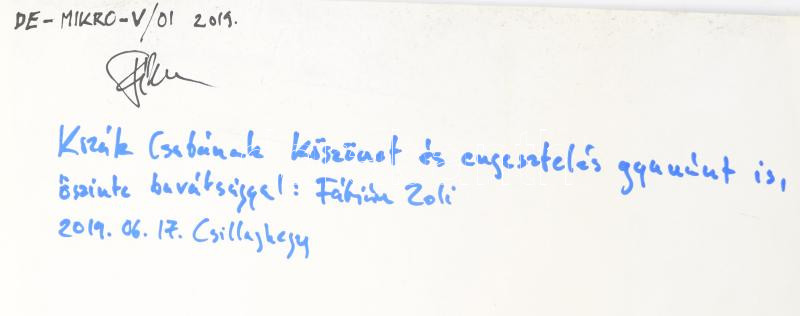 DE-MIKRO-V/01 2019.
Kizák Csabának köszönet és engesztelés gyanánt is,
őszinte barátsággal: Fábián Zoli
2019. 06. 17. Csillaghegy